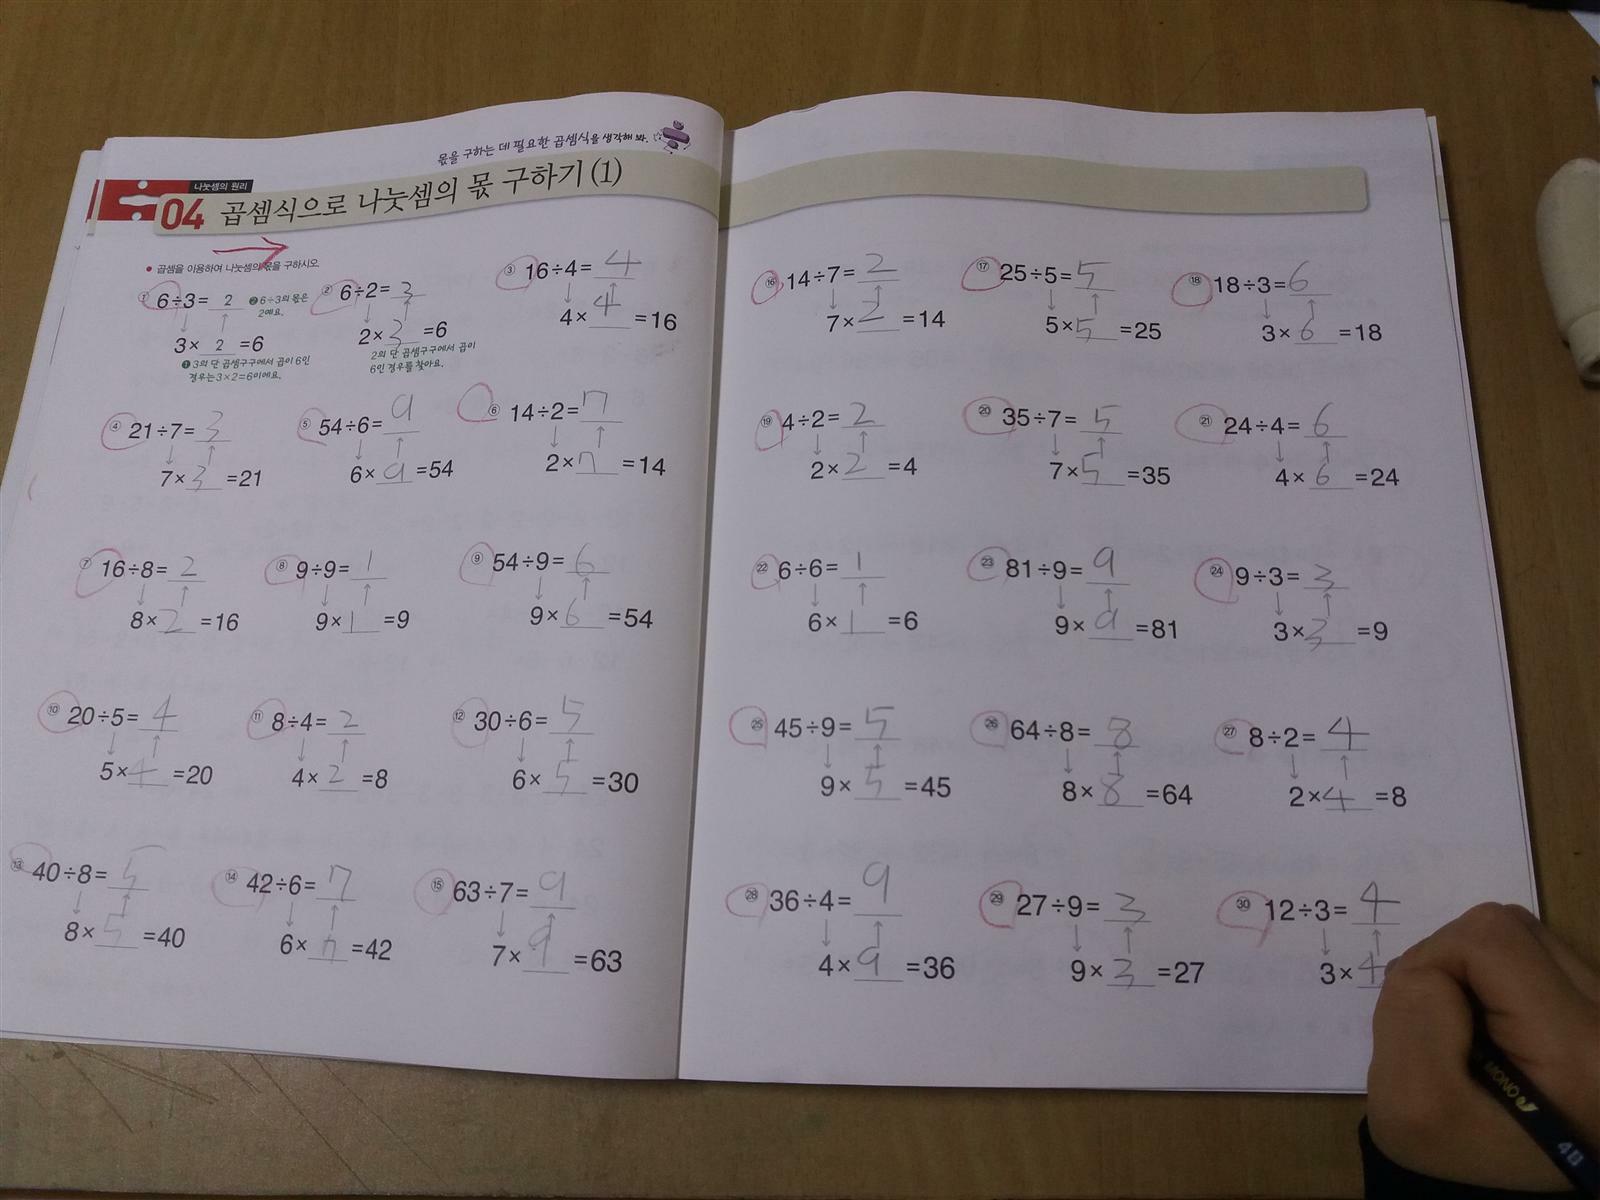 몫을 구하는 데 필요한 곱셈식을 생각해 봐.
나눗셈의 원리
04 곱셈식으로 나눗셈의 몫 구하기 (1)
● 곱셈을 이용하여 나눗셈의 몫을 구하시오.
① 6÷3= 2
❷ 6÷3의 몫은
2예요.
3× 2 =6
❶ 3의 단 곱셈구구에서 곱이 6인
경우는 3×2=6이에요.
② 6÷2= 3
2× 3 =6
2의 단 곱셈구구에서 곱이
6인 경우를 찾아요.
③ 16÷4= 4
4× 4 =16
④ 21÷7= 3
7× 3 =21
⑤ 54÷6= 9
6× 9 =54
⑥ 14÷2= 7
2× 7 =14
⑦ 16÷8= 2
8× 2 =16
⑧ 9÷9= 1
9× 1 =9
⑨ 54÷9= 6
9× 6 =54
⑩ 20÷5= 4
5× 4 =20
⑪ 8÷4= 2
4× 2 =8
⑫ 30÷6= 5
6× 5 =30
⑬ 40÷8= 5
8× 5 =40
⑭ 42÷6= 7
6× 7 =42
⑮ 63÷7= 9
7× 9 =63
⑯ 14÷7= 2
7× 2 =14
⑰ 25÷5= 5
5× 5 =25
⑱ 18÷3= 6
3× 6 =18
⑲ 4÷2= 2
2× 2 =4
⑳ 35÷7= 5
7× 5 =35
㉑ 24÷4= 6
4× 6 =24
㉒ 6÷6= 1
6× 1 =6
㉓ 81÷9= 9
9× 9 =81
㉔ 9÷3= 3
3× 3 =9
㉕ 45÷9= 5
9× 5 =45
㉖ 64÷8= 8
8× 8 =64
㉗ 8÷2= 4
2× 4 =8
㉘ 36÷4= 9
4× 9 =36
㉙ 27÷9= 3
9× 3 =27
㉚ 12÷3= 4
3× 4
MONO 4B